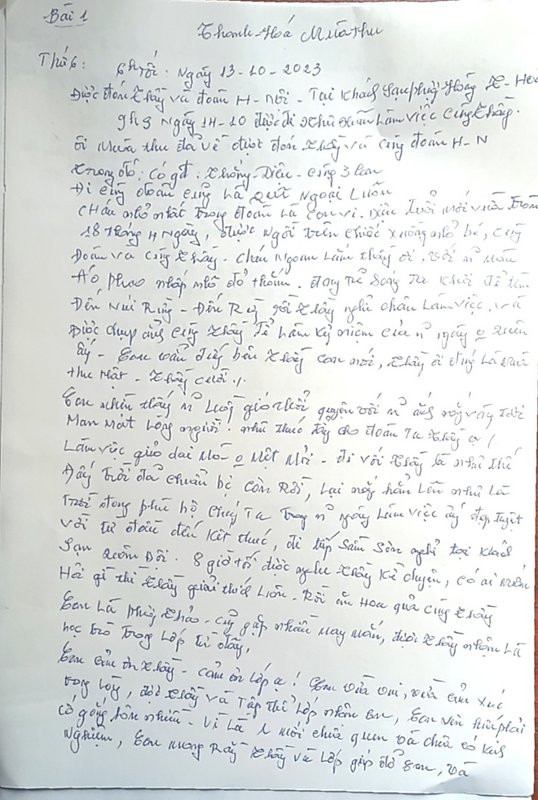 Bài 1
Thanh Hoá Mùa thu
Thứ 6: 6h tối. Ngày 13-10-2023
Được đón Thầy và đoàn H-Nội - Tại Khách Sạn Hoằng H-Hoá
9h3 Ngày 14-10 được đi Làm việc Cùng Thầy.
Ôi Mùa thu đã về được đón Thầy và Cùng đoàn H-N
Trong đó. Có gđ. Diệu - Cùng 3 Con
Đi Cùng đoàn Cùng Bà Ngoại Luôn
Cháu nhỏ nhất Trong đoàn Là Con Vi. Diệu Tuổi mới vừa Tròn
18 Tháng Ngày, được Ngồi Trên Chiếc Xuồng nhỏ bé, Cùng
Đoàn và Cùng Thầy. Cháu Ngoan Lắm thầy ơi, với n màu
Áo phao nhấp nhô đỏ thắm. đang từ Sông Ta Khơi để tiến
Đến Núi Rừng - Đến Rồi Thầy nghỉ chân Làm việc, và
Được chụp ảnh Cùng Thầy Để Làm Kỷ niệm Của n ngày o Quên
ấy - Con vẫn đứng bên Thầy Con nói, Thầy ơi đúng Là mùa
thu nhất - Thầy cười!.
Con nhìn thấy n Luồng gió thổi quyện với n ánh nắng vàng Tươi
Man Mát Lòng người. như thúc đẩy cho đoàn Ta Thầy ạ!
Làm việc giỏ dai Mà o Mệt Mỏi - đi với Thầy là như thế
Đấy Trời đã chuẩn bị Cơn Rồi, Lại nắng hẳn Lên như Là
Trời đang phù hộ Chúng Ta Trong n ngày Làm việc ấy đẹp Tuyệt
Vời từ đầu đến Kết thúc, đi tiếp Sầm Sơn nghỉ tại Khách
Sạn Quân Đội. 8 giờ tối được nghe Thầy Kể chuyện, có ai muốn
Hỏi gì thì Thầy giải thích Luôn - Rồi ăn Hoa quả Cùng Thầy
Con Là Thảo - gặp nhiều May mắn, được Thầy nhận Là
học trò Trong Lớp từ đây,
Con Cảm ơn Thầy - Cảm ơn Lớp ạ! Con vừa vui, vừa Cảm Xúc
Trong Lòng, được Thầy và Tập thể Lớp nhận Con, Con phải
Cố gắng hơn nhiều - Vì Là n mới chưa quen và chưa có Kinh
Nghiệm, Con mong Rằng Thầy và Lớp giúp đỡ Con, và